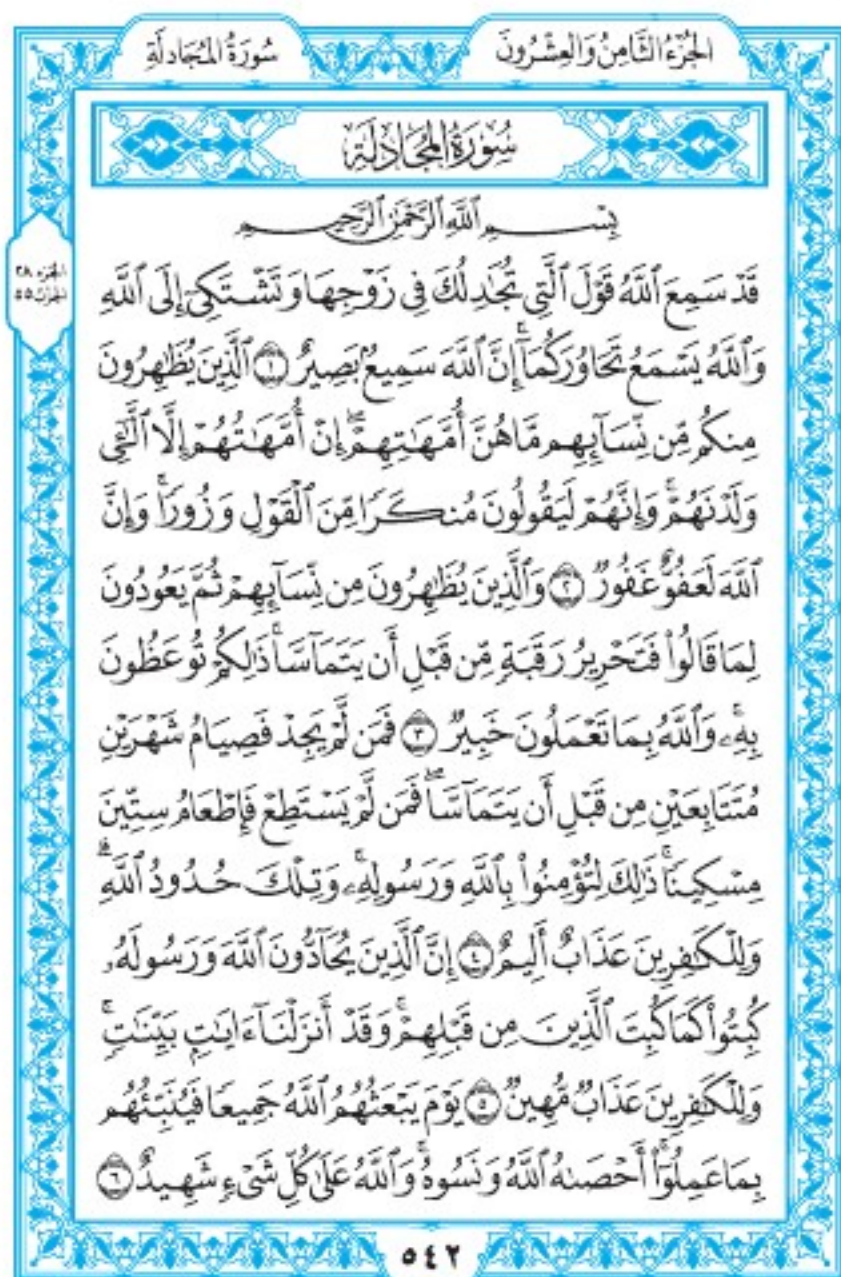 الجُزْءُ الثَّامِنُ وَالعِشْرُونَ
سُورَةُ المُجَادلَةِ
سُورَةُ المُجَادلَةِ
بِسْمِ ٱللَّهِ ٱلرَّحْمَٰنِ ٱلرَّحِيمِ
الجزء ٢٨
الحزب ٥٥
قَدْ سَمِعَ ٱللَّهُ قَوْلَ ٱلَّتِي تُجَٰدِلُكَ فِي زَوْجِهَا وَتَشْتَكِيٓ إِلَى ٱللَّهِ
وَٱللَّهُ يَسْمَعُ تَحَاوُرَكُمَآۚ إِنَّ ٱللَّهَ سَمِيعُۢ بَصِيرٌ ١ ٱلَّذِينَ يُظَٰهِرُونَ
مِنكُم مِّن نِّسَآئِهِم مَّا هُنَّ أُمَّهَٰتِهِمْۖ إِنْ أُمَّهَٰتُهُمْ إِلَّا ٱلَّٰٓـِٔي
وَلَدْنَهُمْۚ وَإِنَّهُمْ لَيَقُولُونَ مُنكَرًا مِّنَ ٱلْقَوْلِ وَزُورًاۚ وَإِنَّ
ٱللَّهَ لَعَفُوٌّ غَفُورٌ ٢ وَٱلَّذِينَ يُظَٰهِرُونَ مِن نِّسَآئِهِمْ ثُمَّ يَعُودُونَ
لِمَا قَالُواْ فَتَحْرِيرُ رَقَبَةٍ مِّن قَبْلِ أَن يَتَمَآسَّاۚ ذَٰلِكُمْ تُوعَظُونَ
بِهِۦۚ وَٱللَّهُ بِمَا تَعْمَلُونَ خَبِيرٌ ٣ فَمَن لَّمْ يَجِدْ فَصِيَامُ شَهْرَيْنِ
مُتَتَابِعَيْنِ مِن قَبْلِ أَن يَتَمَآسَّاۖ فَمَن لَّمْ يَسْتَطِعْ فَإِطْعَامُ سِتِّينَ
مِسْكِينًاۚ ذَٰلِكَ لِتُؤْمِنُواْ بِٱللَّهِ وَرَسُولِهِۦۚ وَتِلْكَ حُدُودُ ٱللَّهِۗ
وَلِلْكَٰفِرِينَ عَذَابٌ أَلِيمٌ ٤ إِنَّ ٱلَّذِينَ يُحَآدُّونَ ٱللَّهَ وَرَسُولَهُۥ
كُبِتُواْ كَمَا كُبِتَ ٱلَّذِينَ مِن قَبْلِهِمْۚ وَقَدْ أَنزَلْنَآ ءَايَٰتِۭ بَيِّنَٰتٍۚ
وَلِلْكَٰفِرِينَ عَذَابٌ مُّهِينٌ ٥ يَوْمَ يَبْعَثُهُمُ ٱللَّهُ جَمِيعًا فَيُنَبِّئُهُم
بِمَا عَمِلُوٓاْۚ أَحْصَىٰهُ ٱللَّهُ وَنَسُوهُۚ وَٱللَّهُ عَلَىٰ كُلِّ شَيْءٍ شَهِيدٌ ٦
٥٤٢